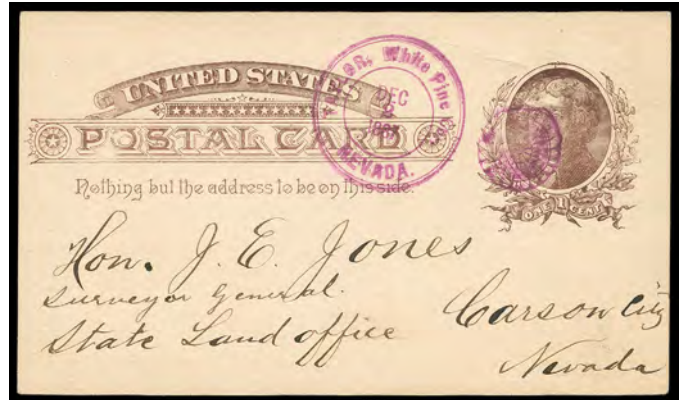 UNITED STATES
POSTAL CARD
Nothing but the address to be on this side.
White Pine Co.
DEC
NEVADA.
ONE 1 CENT
Hon. J. E. Jones
Surveyor General.
State Land office
Carson City
Nevada